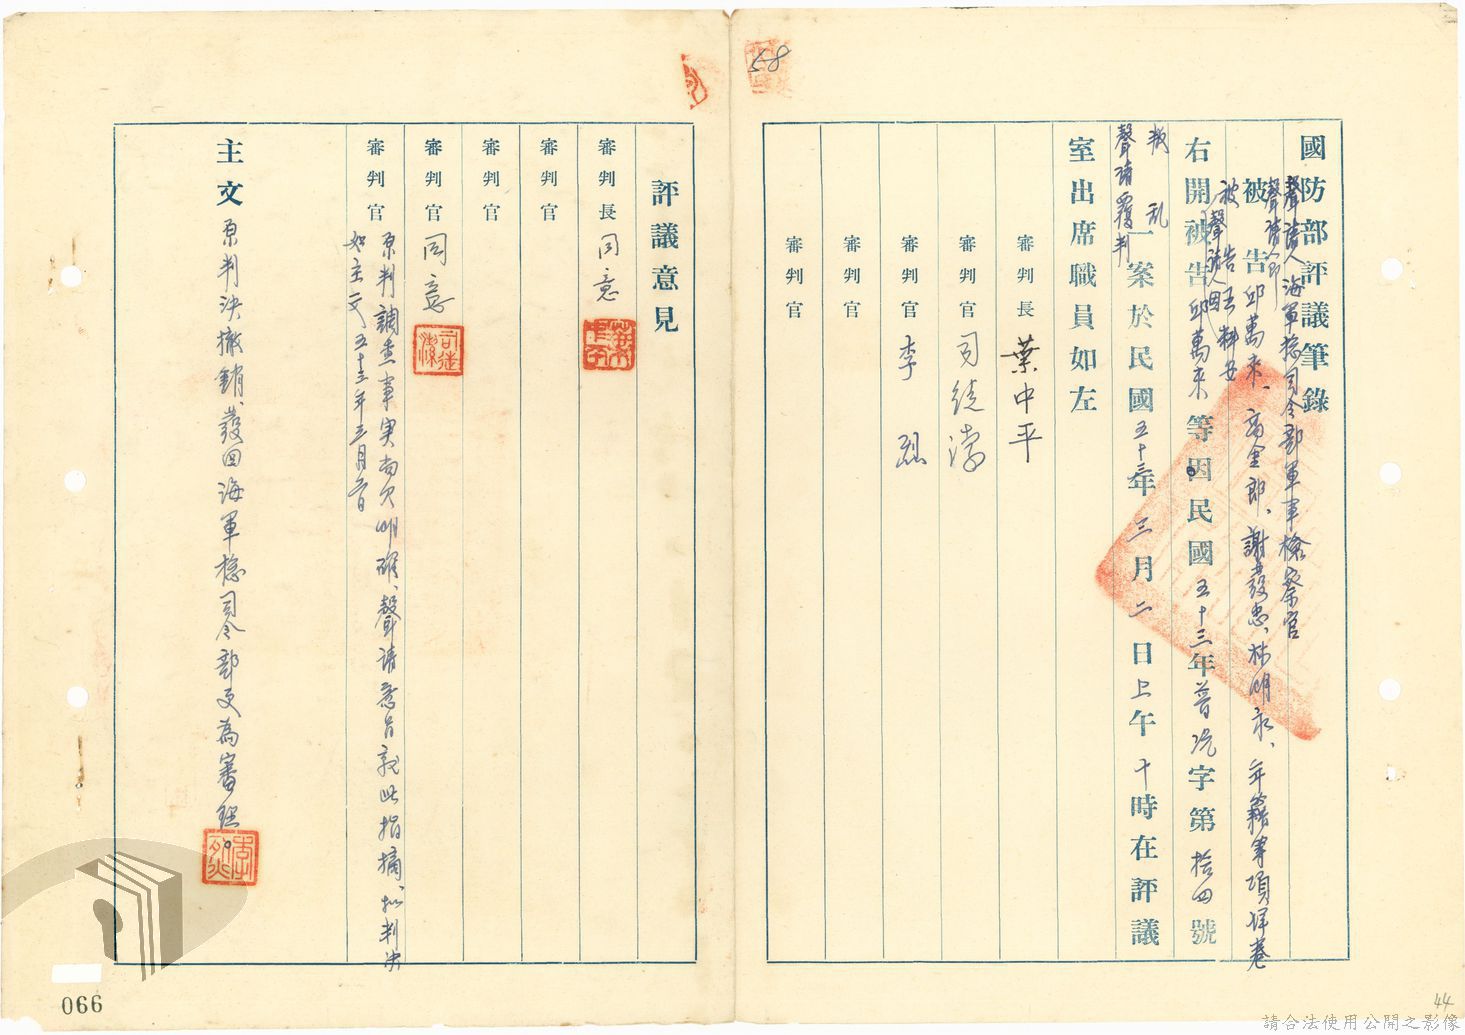 58
國防部評議筆錄
聲請人海軍總司令部軍事檢察官
聲請人即
被告邱萬來、高金郎、謝發忠、林明永、年籍事項詳卷
被告王耕安
右開被告邱萬來等因民國五十三年普沉字第拾四號
聲請人因
叛亂
聲請覆判
一案於民國五十三年三月二日上午十時在評議
室出席職員如左
審判長 葉中平
審判官 司徒潔
審判官 李烈
審判官
審判官
評議意見
審判長 同意
審判官
審判官
審判官 同意
審判官 原判調查事実尚欠明確、聲請意旨就此指摘、拟判決
如主文 五十三年三月二日
主文 原判決撤銷、發回海軍總司令部更為審理。
066
44
請合法使用公開之影像